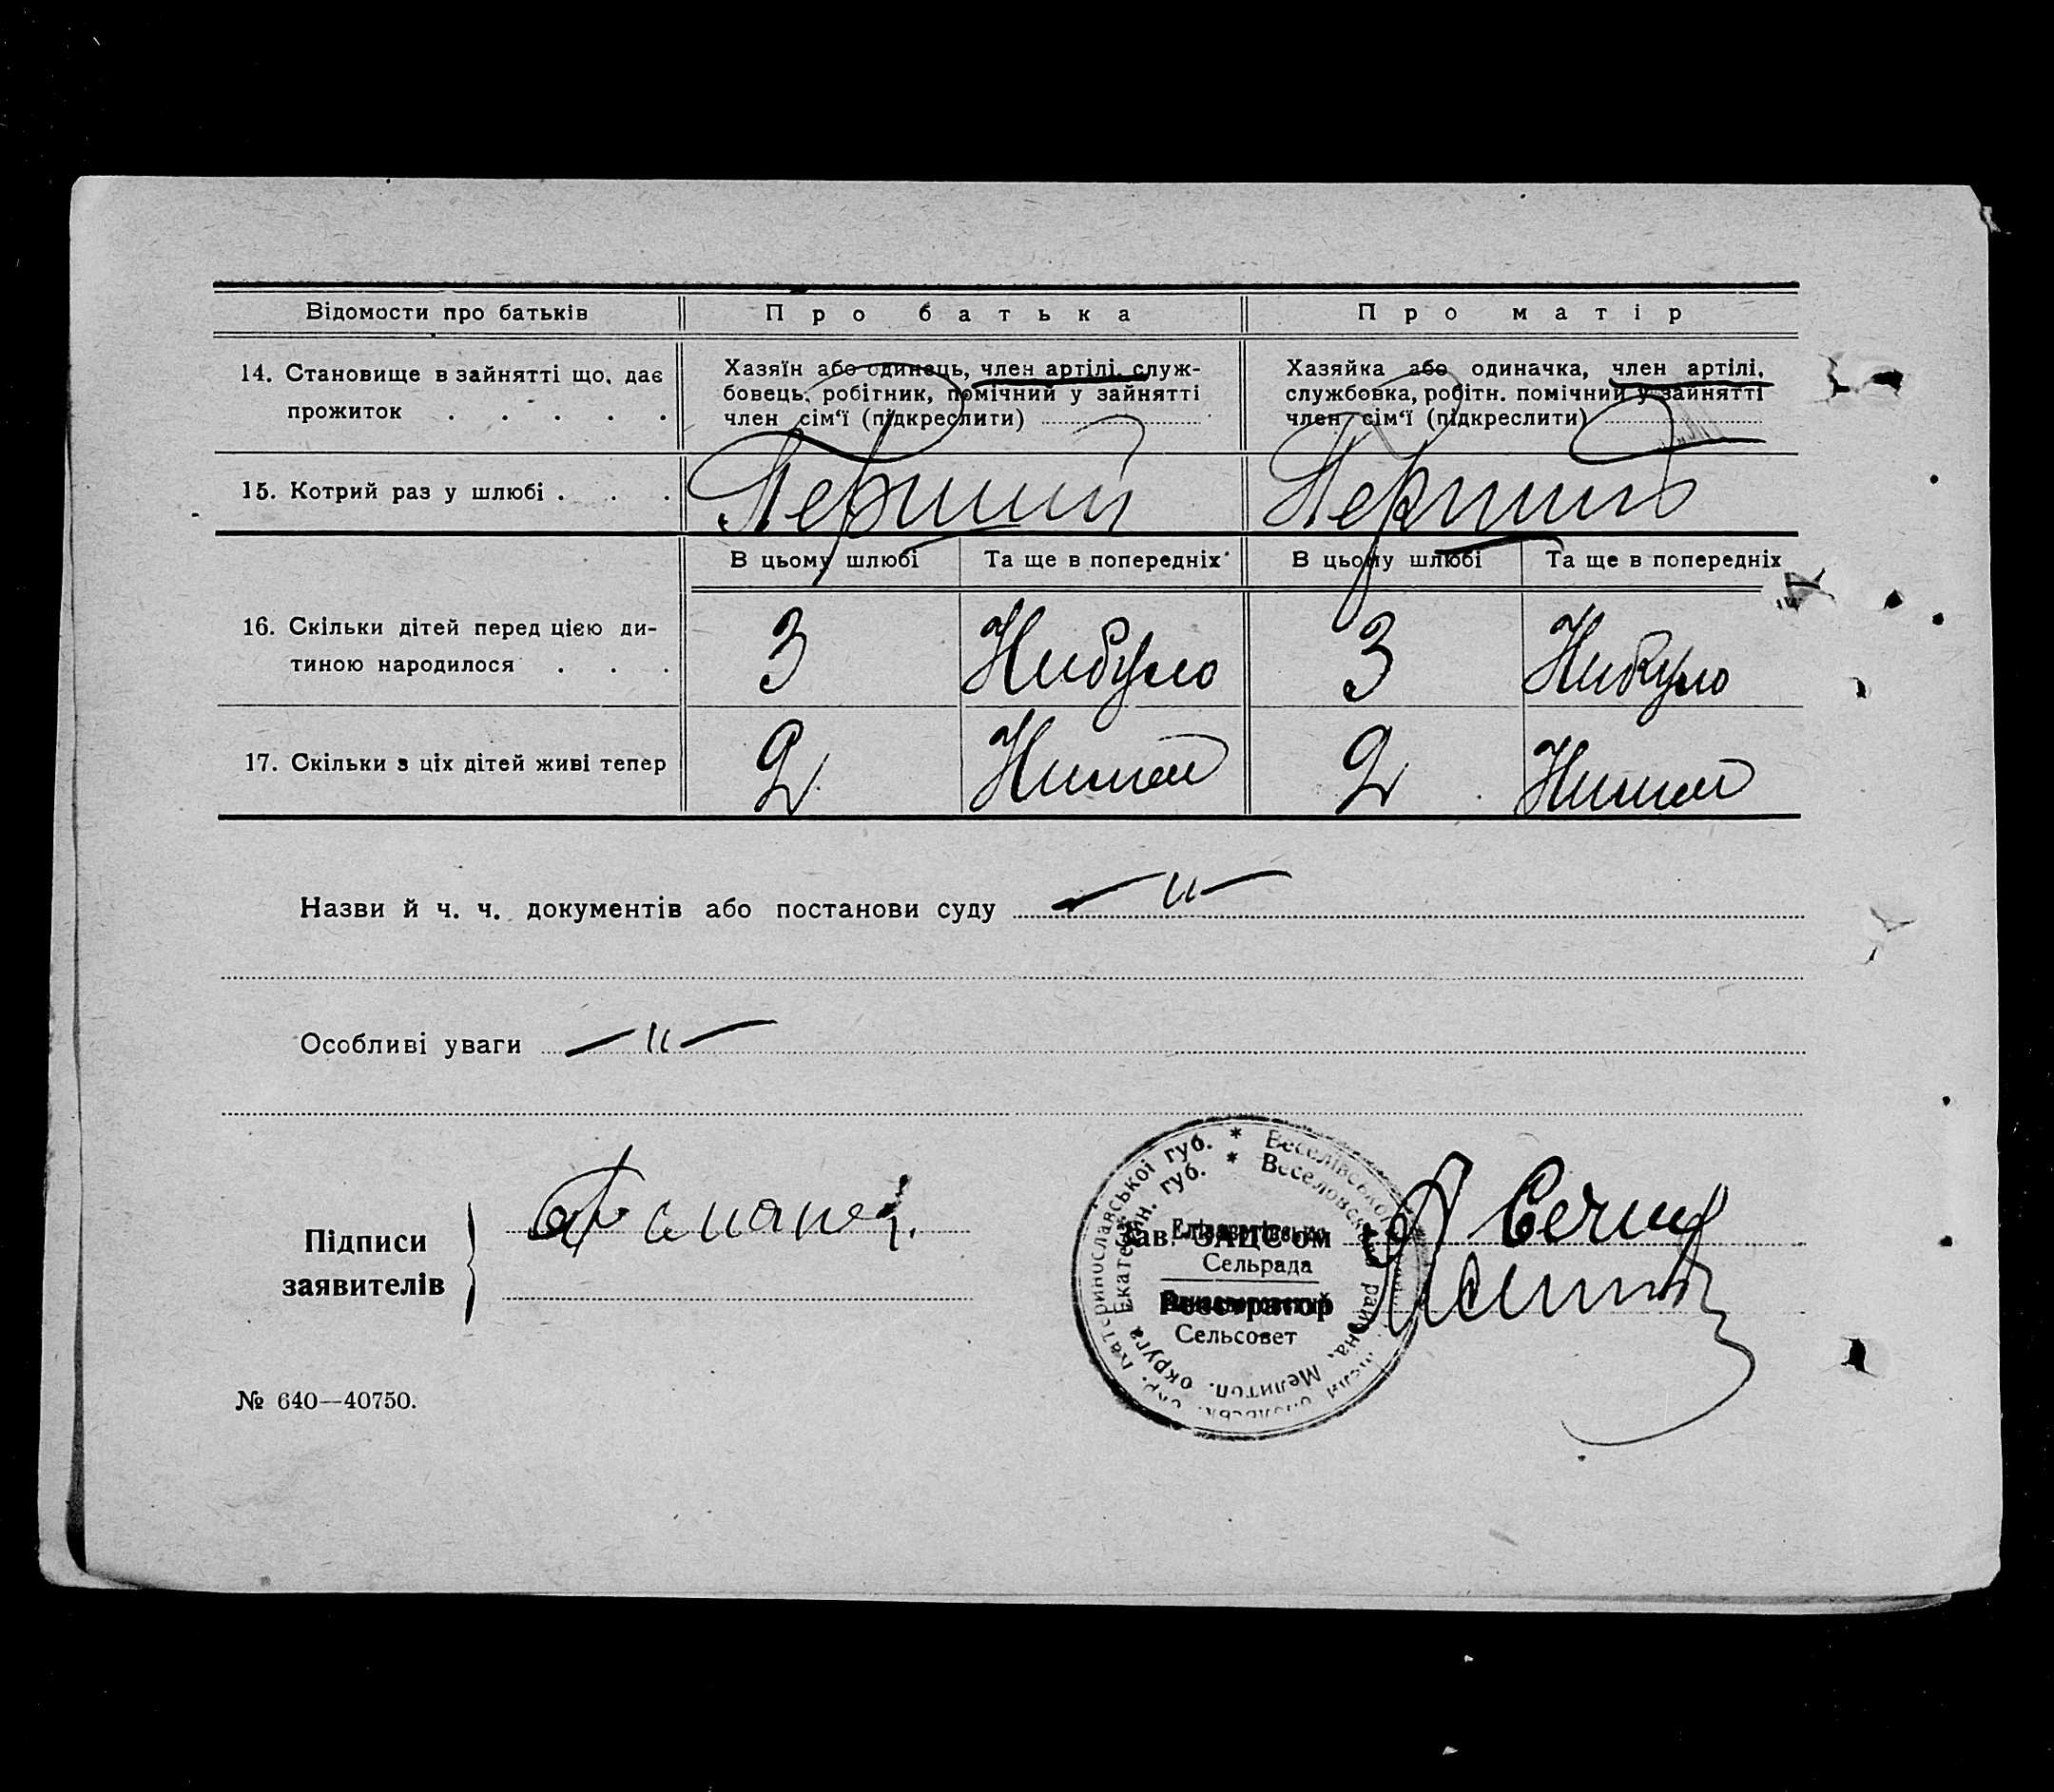 Відомости про батьків
Про батька
Про матір
14. Становище в зайнятті що, дає
прожиток . . . . .
Хазяїн або одинець, член артілі, служ-
бовець, робітник, помічний у зайнятті
член сім‘ї (підкреслити)
Хазяйка або одиначка, член артілі,
службовка, робітн. помічний у зайнятті
член сім‘ї (підкреслити)
15. Котрий раз у шлюбі . . .
Перший
Перший
В цьому шлюбі
Та ще в попередніх
В цьому шлюбі
Та ще в попередніх
16. Скільки дітей перед цією ди-
тиною народилося . . .
3
Нибуло
3
Нибуло
17. Скільки з ціх дітей живі тепер
2
Нимає
2
Нимає
Назви й ч. ч. документів або постанови суду —〃—
Особливі уваги —〃—
Підписи
заявителів
Зав. ЗАЦС'ом
Сельрада
Реєстратор
Сельсовет
Катеринославської губ. * Веселівського
округа Екатерин. губ. * Веселовск. района, Мелитоп.
№ 640—40750.